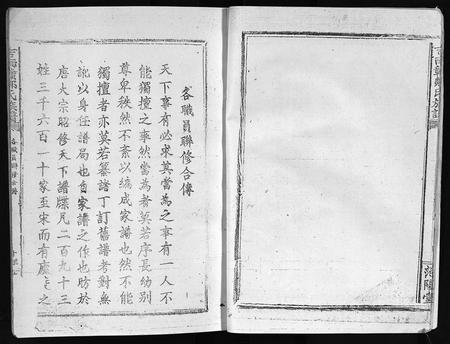 各職員聯修合傳
天下事有必求其當為之事有一人不
能獨擅之事然當為者莫若序長幼別
尊卑秩然不紊以編成家譜也然不能
獨擅者亦莫若纂譜丁訂舊譜考對無
訛以身任譜局也自家譜之作也昉於
唐太宗昭修天下譜牒凡二百九十三
姓三千六百一十家至宋而有廬
之
氏族譜
滎陽堂